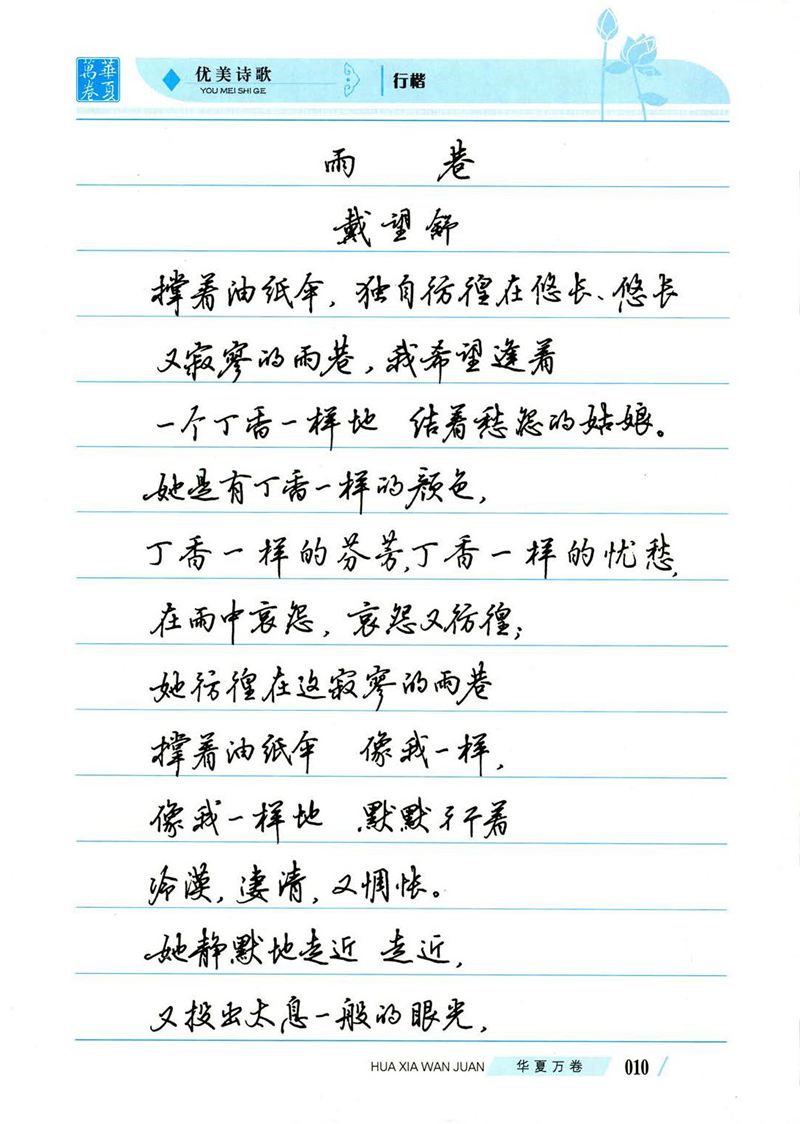 華夏
萬卷
优美诗歌
YOU MEI SHI GE
行楷
雨 巷
戴望舒
撑着油纸伞，独自彷徨在悠长、悠长
又寂寥的雨巷，我希望逢着
一个丁香一样地 结着愁怨的姑娘。
她是有丁香一样的颜色，
丁香一样的芬芳，丁香一样的忧愁，
在雨中哀怨，哀怨又彷徨；
她彷徨在这寂寥的雨巷
撑着油纸伞 像我一样，
像我一样地 默默彳亍着
冷漠，凄清，又惆怅。
她静默地走近 走近，
又投出太息一般的眼光，
HUA XIA WAN JUAN 华夏万卷 010